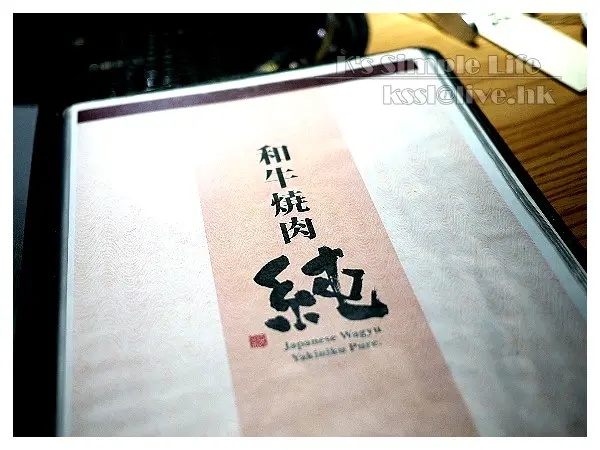 K's Simple Life
kssl@live.hk
和牛焼肉
純
Japanese Wagyu
Yakiniku Pure.